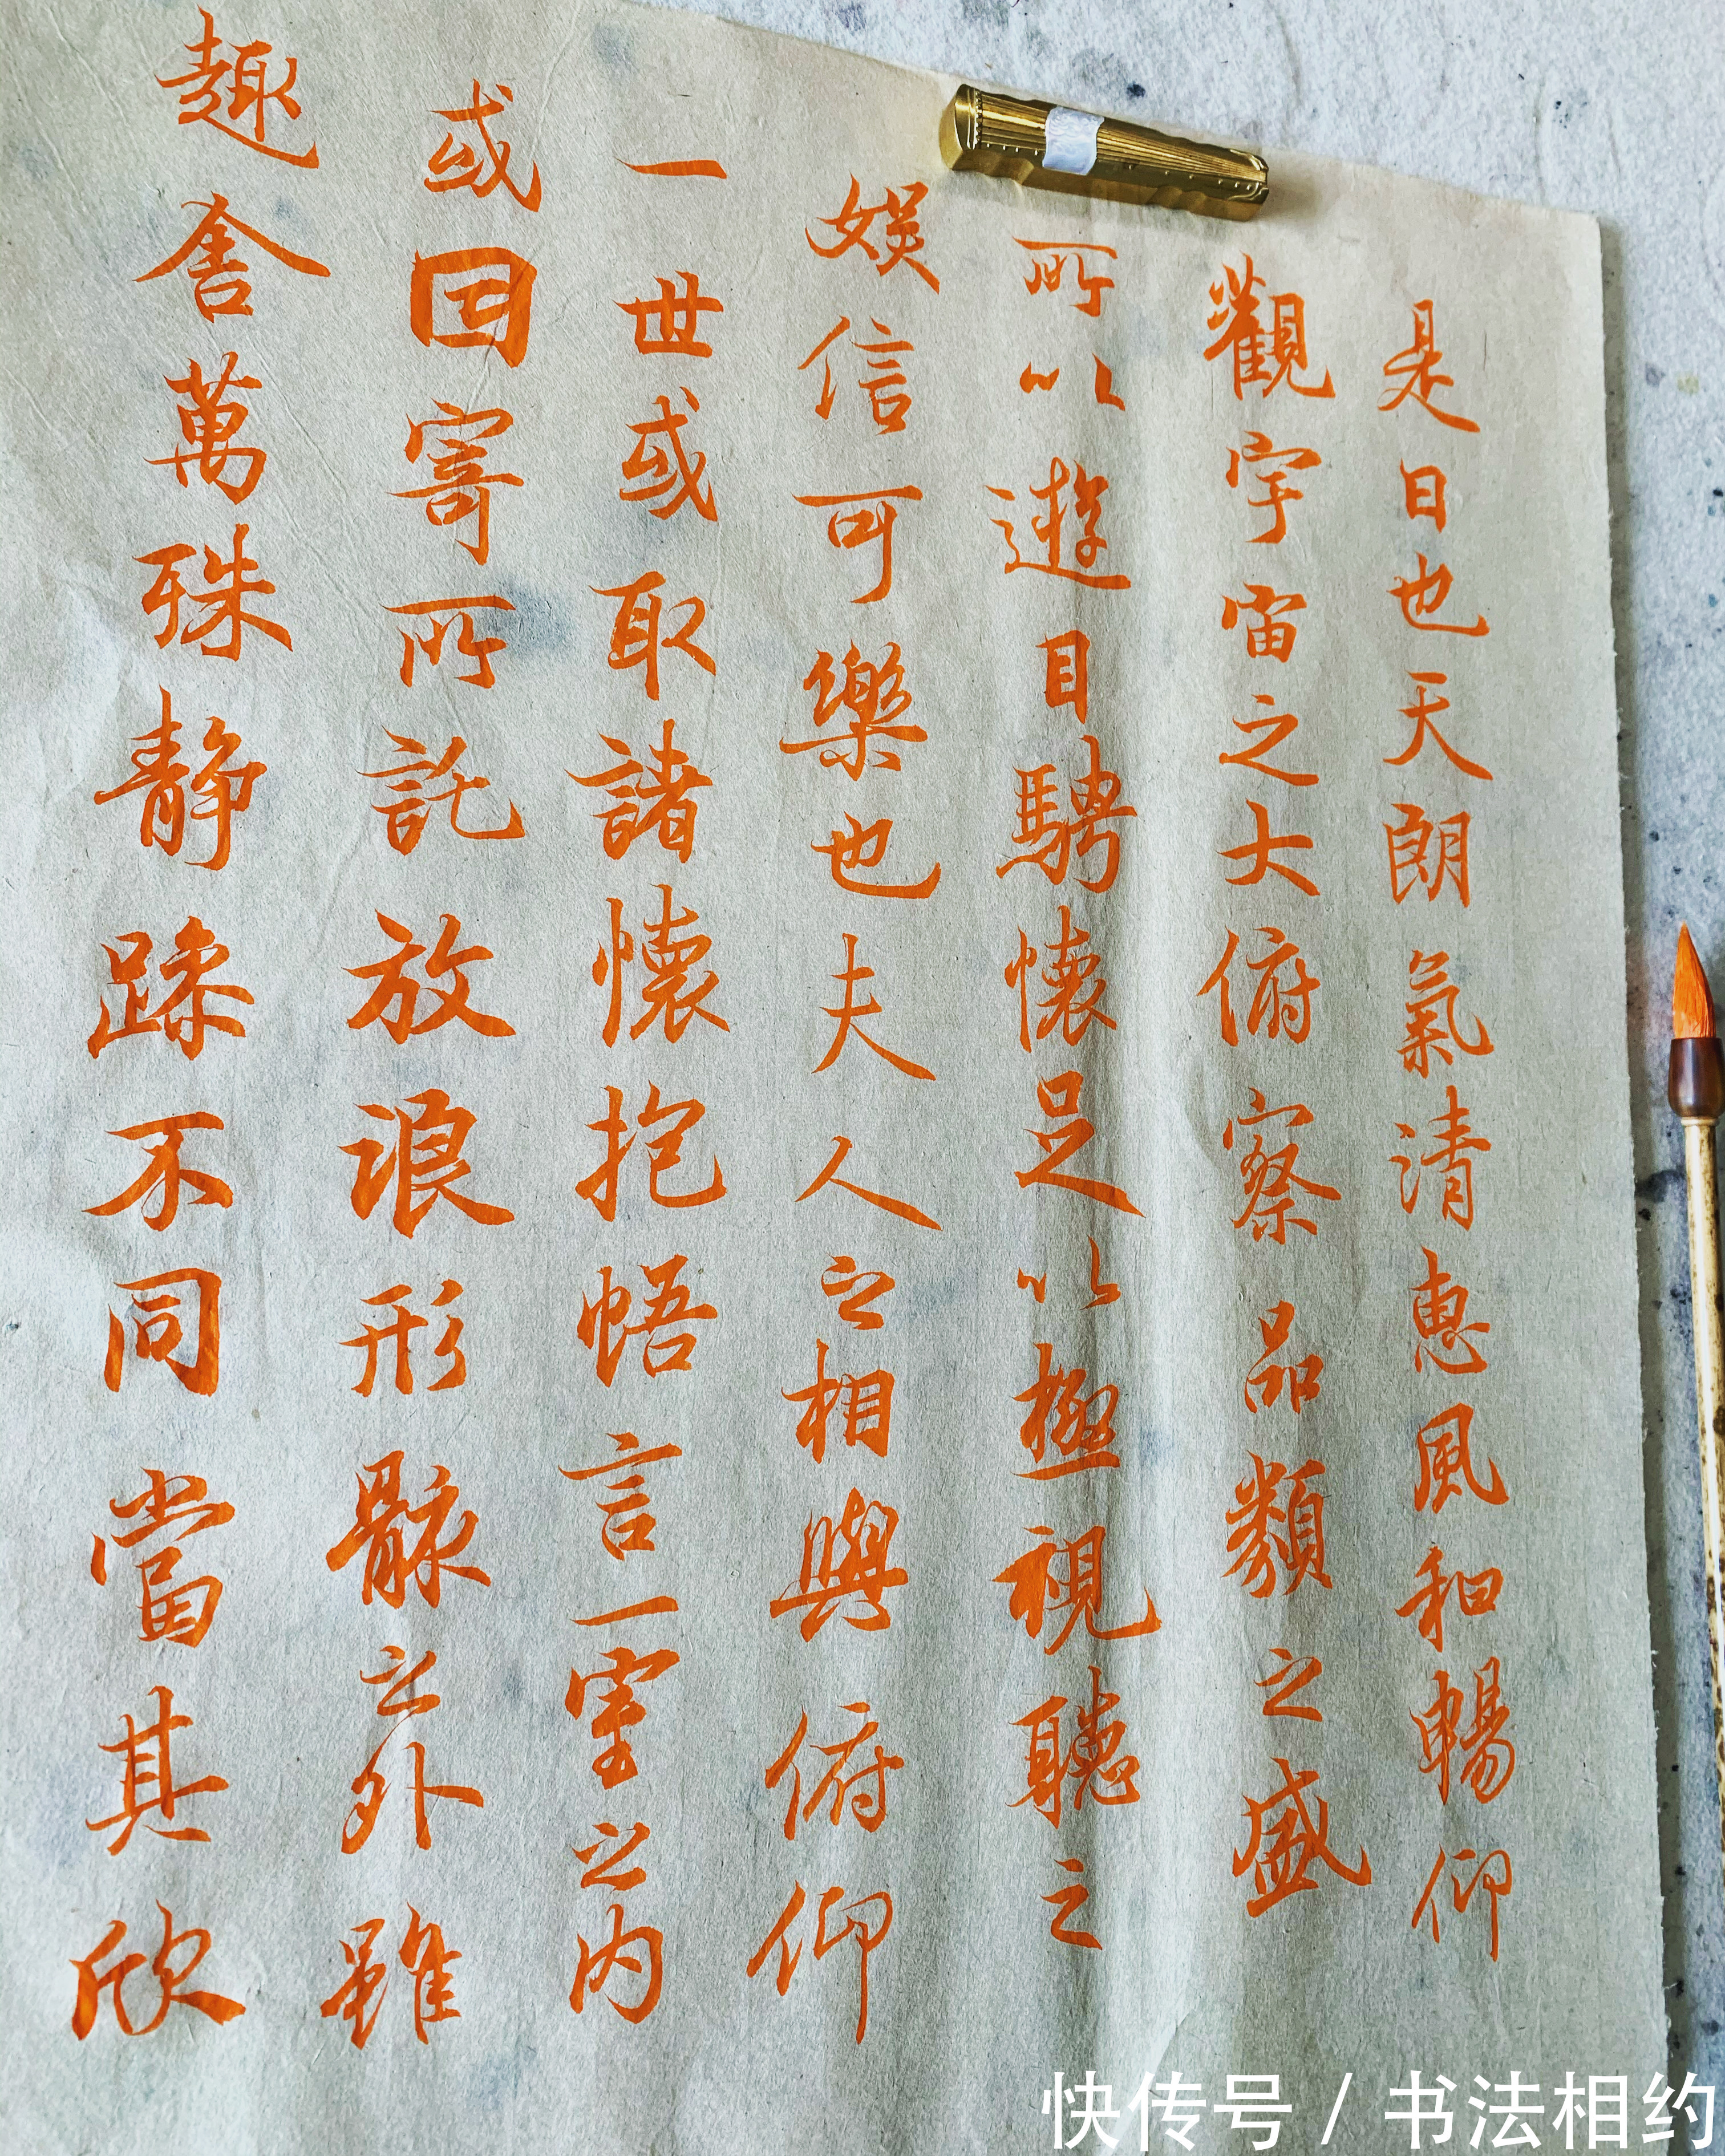 是日也天朗氣清惠風和暢仰
觀宇宙之大俯察品類之盛
所以遊目騁懷足以極視聽之
娛信可樂也夫人之相與俯仰
一世或取諸懷抱悟言一室之内
或因寄所託放浪形骸之外雖
趣舍萬殊静躁不同當其欣
快传号/书法相约